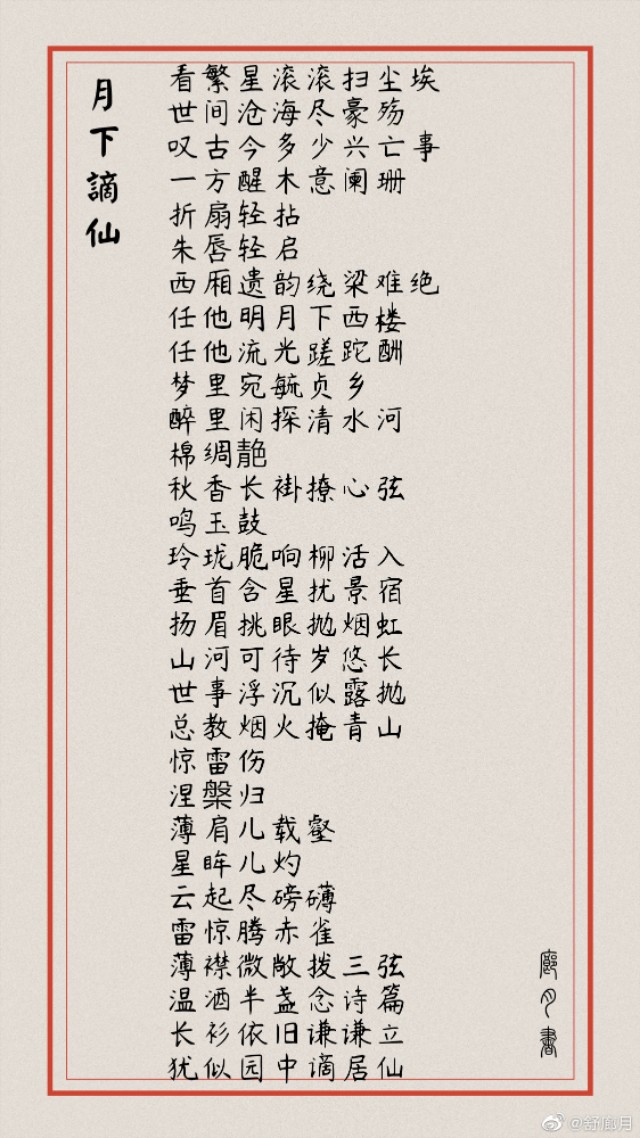 月下謫仙
看繁星滚滚扫尘埃
世间沧海尽豪殇
叹古今多少兴亡事
一方醒木意阑珊
折扇轻拈
朱唇轻启
西厢遗韵绕梁难绝
任他明月下西楼
任他流光蹉跎酬
梦里宛毓贞乡
醉里闲探清水河
棉绸靘
秋香长褂撩心弦
鸣玉鼓
玲珑脆响柳活入
垂首含星扰景宿
扬眉挑眼抛烟虹
山河可待岁悠长
世事浮沉似露抛
总教烟火掩青山
惊雷伤
涅槃归
薄肩儿载壑
星眸儿灼
云起尽磅礴
雷惊腾赤雀
薄襟微敞拨三弦
温酒半盏念诗篇
长衫依旧谦谦立
犹似园中谪居仙
月書
@舒廊月